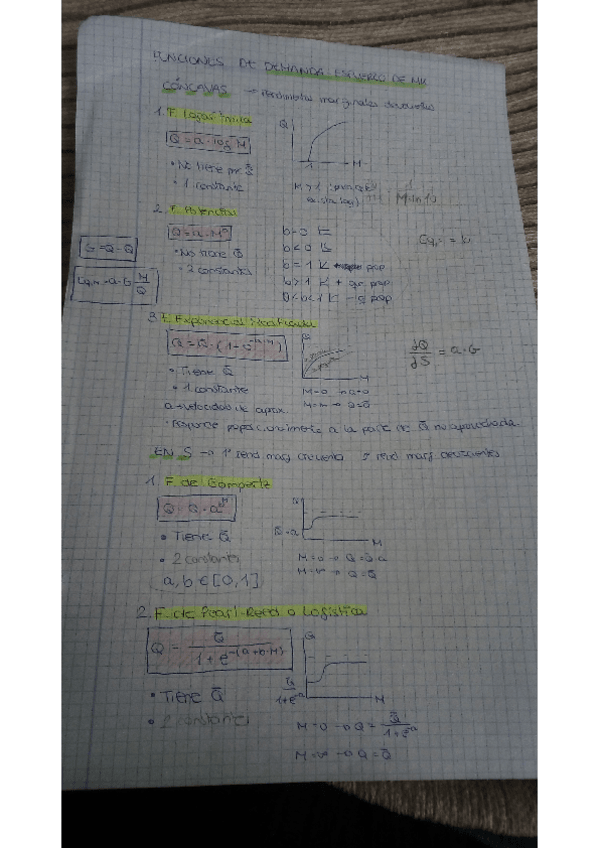 FUNCIONES DE DEMANDA: ESFUERZO DE MK
CÓNCAVAS → rendimientos marginales decrecientes
1. F. Logarítmica
Q = a · log M
• No tiene Q̄
• 1 constante
Q
1
M
M > 1
2. F. Potencial
Q = a · M^b
• No tiene Q̄
• 2 constantes
b = 0 K
b < 0 K
b = 1 K prop
b > 1 K + q prop
0 < b < 1 K - q prop
= b
G = Q̄ - Q
M
Q
3. F. Exponencial Modificada
• Tiene Q̄
• 1 constante
a → velocidad de aprox.
M
M=0 → Q=0
M=∞ → Q=Q̄
∂Q/∂S = a · G
• Responde proporcionalmente a la parte de Q̄ no aprovechada
EN S → 1º rend marg creciente 2º rend marg decrecientes
1. F. de Gompertz
• Tiene Q̄
• 2 constantes
a, b ∈ [0,1]
Q
M
M=0 → Q = Q̄·a
M=∞ → Q = Q̄
2. F. de Pearl-Reed o Logística
Q = Q̄ / 1 + e^-(a+b·M)
• Tiene Q̄
• 2 constantes
Q
M
M=0 → Q = Q̄ / 1+e^-a
M=∞ → Q = Q̄